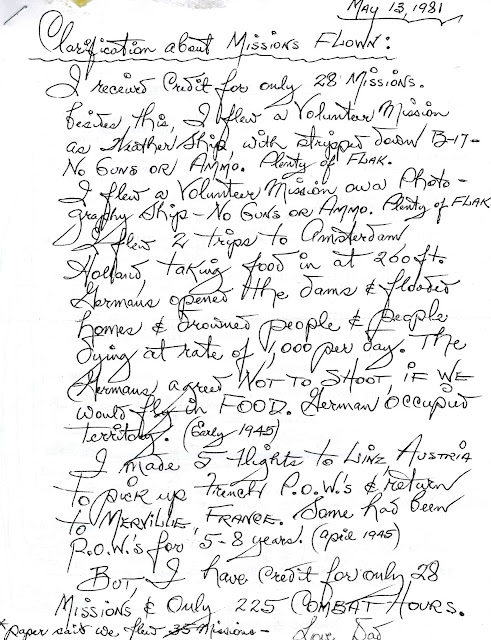 May 13, 1981
Clarification about Missions Flown:
I received Credit for only 28 Missions.
Besides this, I flew a Volunteer Mission
as Weather Ship with stripped down B-17-
No Guns or Ammo. Plenty of Flak.
I flew a Volunteer Mission on a Photo-
graphy Ship - No Guns or Ammo. Plenty of Flak
I flew 2 trips to Amsterdam
Holland taking food in at 260 ft.
Germans opened the dams & flooded
homes & drowned people & people
dying at rate of 1,000 per day. The
Germans agreed NOT TO SHOOT, IF WE
would fly in FOOD. German Occupied
territory. (Early 1945)
I made 5 flights to Linz, Austria
to pick up French P.O.W.'s & return
to Merville, France. Some had been
P.O.W.'s for 5-8 years. (April 1945)
But, I have Credit for only 28
Missions & Only 225 COMBAT HOURS.
*paper said we flew 35 Missions -
Love Dad